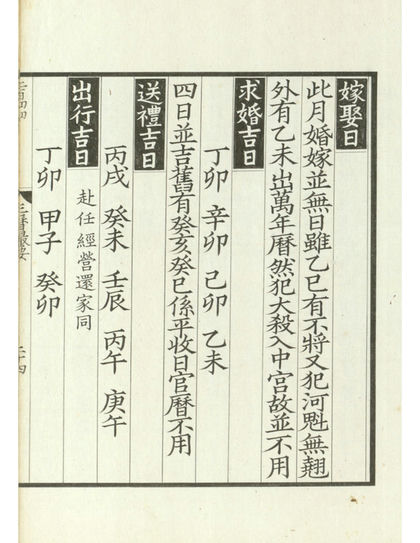 嫁娶日
此月婚嫁並無日雖乙巳有不將又犯河魁無翹
外有乙未出萬年曆然犯大殺入中宮故並不用
求婚吉日
丁卯 辛卯 己卯 乙未
四日並吉舊有癸亥癸巳係平收日官曆不用
送禮吉日
丙戌 癸未 壬辰 丙午 庚午
出行吉日
赴任經營還家同
丁卯 甲子 癸卯
三曆撮要
二十四